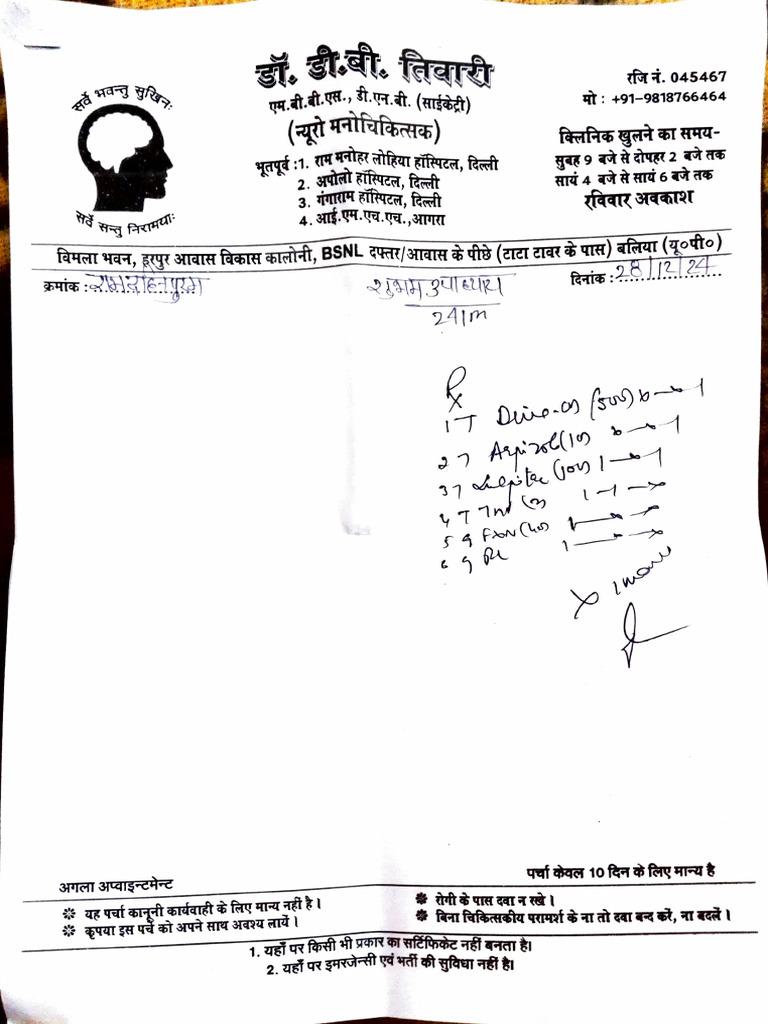 डॉ. डी.बी. तिवारी
एम.बी.बी.एस., डी.एन.बी. (साईकेट्री)
(न्यूरो मनोचिकित्सक)
भूतपूर्व :1. राम मनोहर लोहिया हॉस्पिटल, दिल्ली
2. अपोलो हॉस्पिटल, दिल्ली
3. गंगाराम हॉस्पिटल, दिल्ली
4. आई.एम.एच.एच.,आगरा
सर्वे भवन्तु सुखिनः
सर्वे सन्तु निरामयाः
रजि नं. 045467
मो : +91-9818766464
क्लिनिक खुलने का समय-
सुबह 9 बजे से दोपहर 2 बजे तक
सायं 4 बजे से सायं 6 बजे तक
रविवार अवकाश
विमला भवन, हरपुर आवास विकास कालोनी, BSNL दफ्तर/आवास के पीछे (टाटा टावर के पास) बलिया (यू०पी०)
क्रमांक : शुभम उपाध्याय दिनांक : 28/12/24
24/m
Rx
1 T (500) x—x—1
2 T Aripizol (10) x—x—1
3 T (100) 1—x—1
4 T 1—1—x
5 (40) 1—x—x
6 1—x—x
x 1
अगला अप्वाइन्टमेन्ट
पर्चा केवल 10 दिन के लिए मान्य है
❉ यह पर्चा कानूनी कार्यवाही के लिए मान्य नहीं है।
❉ कृपया इस पर्चे को अपने साथ अवश्य लायें।
❉ रोगी के पास दवा न रखे।
❉ बिना चिकित्सकीय परामर्श के ना तो दवा बन्द करें, ना बदलें।
1. यहाँ पर किसी भी प्रकार का सर्टिफिकेट नहीं बनता है।
2. यहाँ पर इमरजेन्सी एवं भर्ती की सुविधा नहीं है।